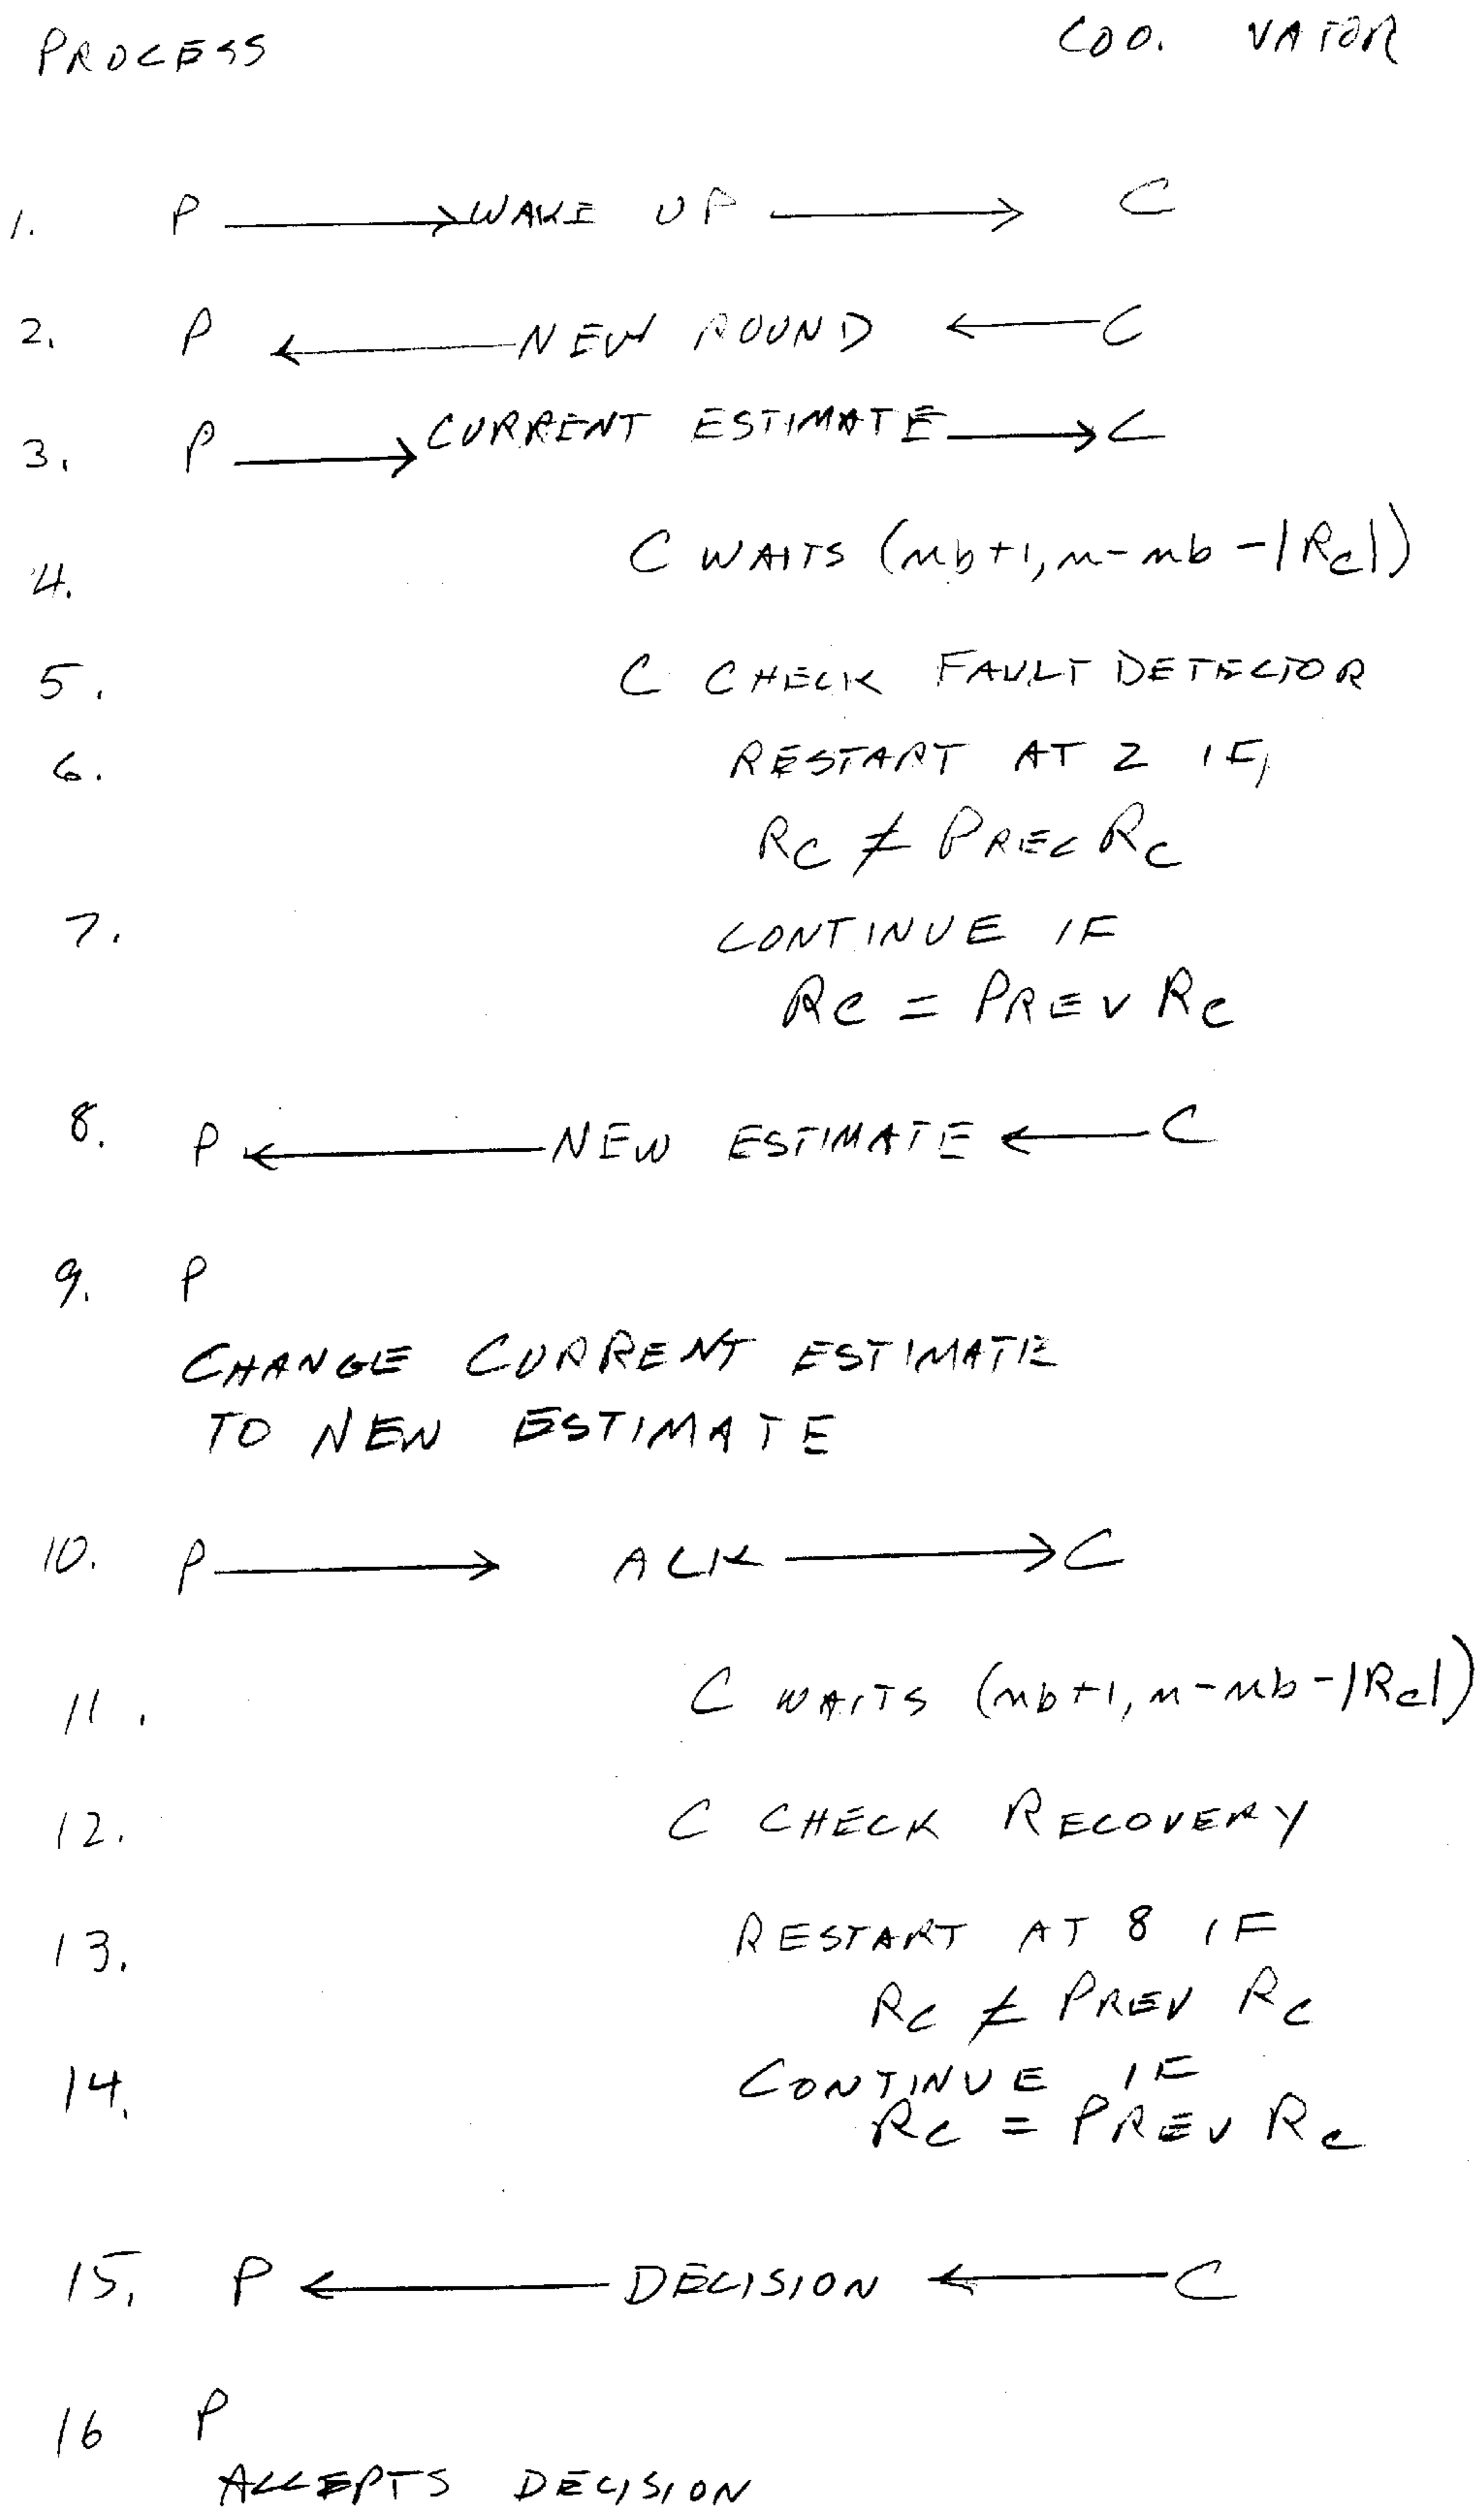 PROCESS COO. VATOR
1. P → WAKE UP → C
2. P ← NEW ROUND ← C
3. P → CURRENT ESTIMATE → C
4. C WAITS (nb+1, n-nb-|Rc|)
5. C CHECK FAULT DETECTOR
6. RESTART AT 2 IF,
Rc ≠ PREC Rc
7. CONTINUE IF
Rc = PREV Rc
8. P ← NEW ESTIMATE ← C
9. P
CHANGE CURRENT ESTIMATE
TO NEW ESTIMATE
10. P → ACK → C
11. C WAITS (nb+1, n-nb-|Rc|)
12. C CHECK RECOVERY
13. RESTART AT 8 IF
Rc ≠ PREV Rc
14. CONTINUE IF
Rc = PREV Rc
15. P ← DECISION ← C
16 P
ACCEPTS DECISION